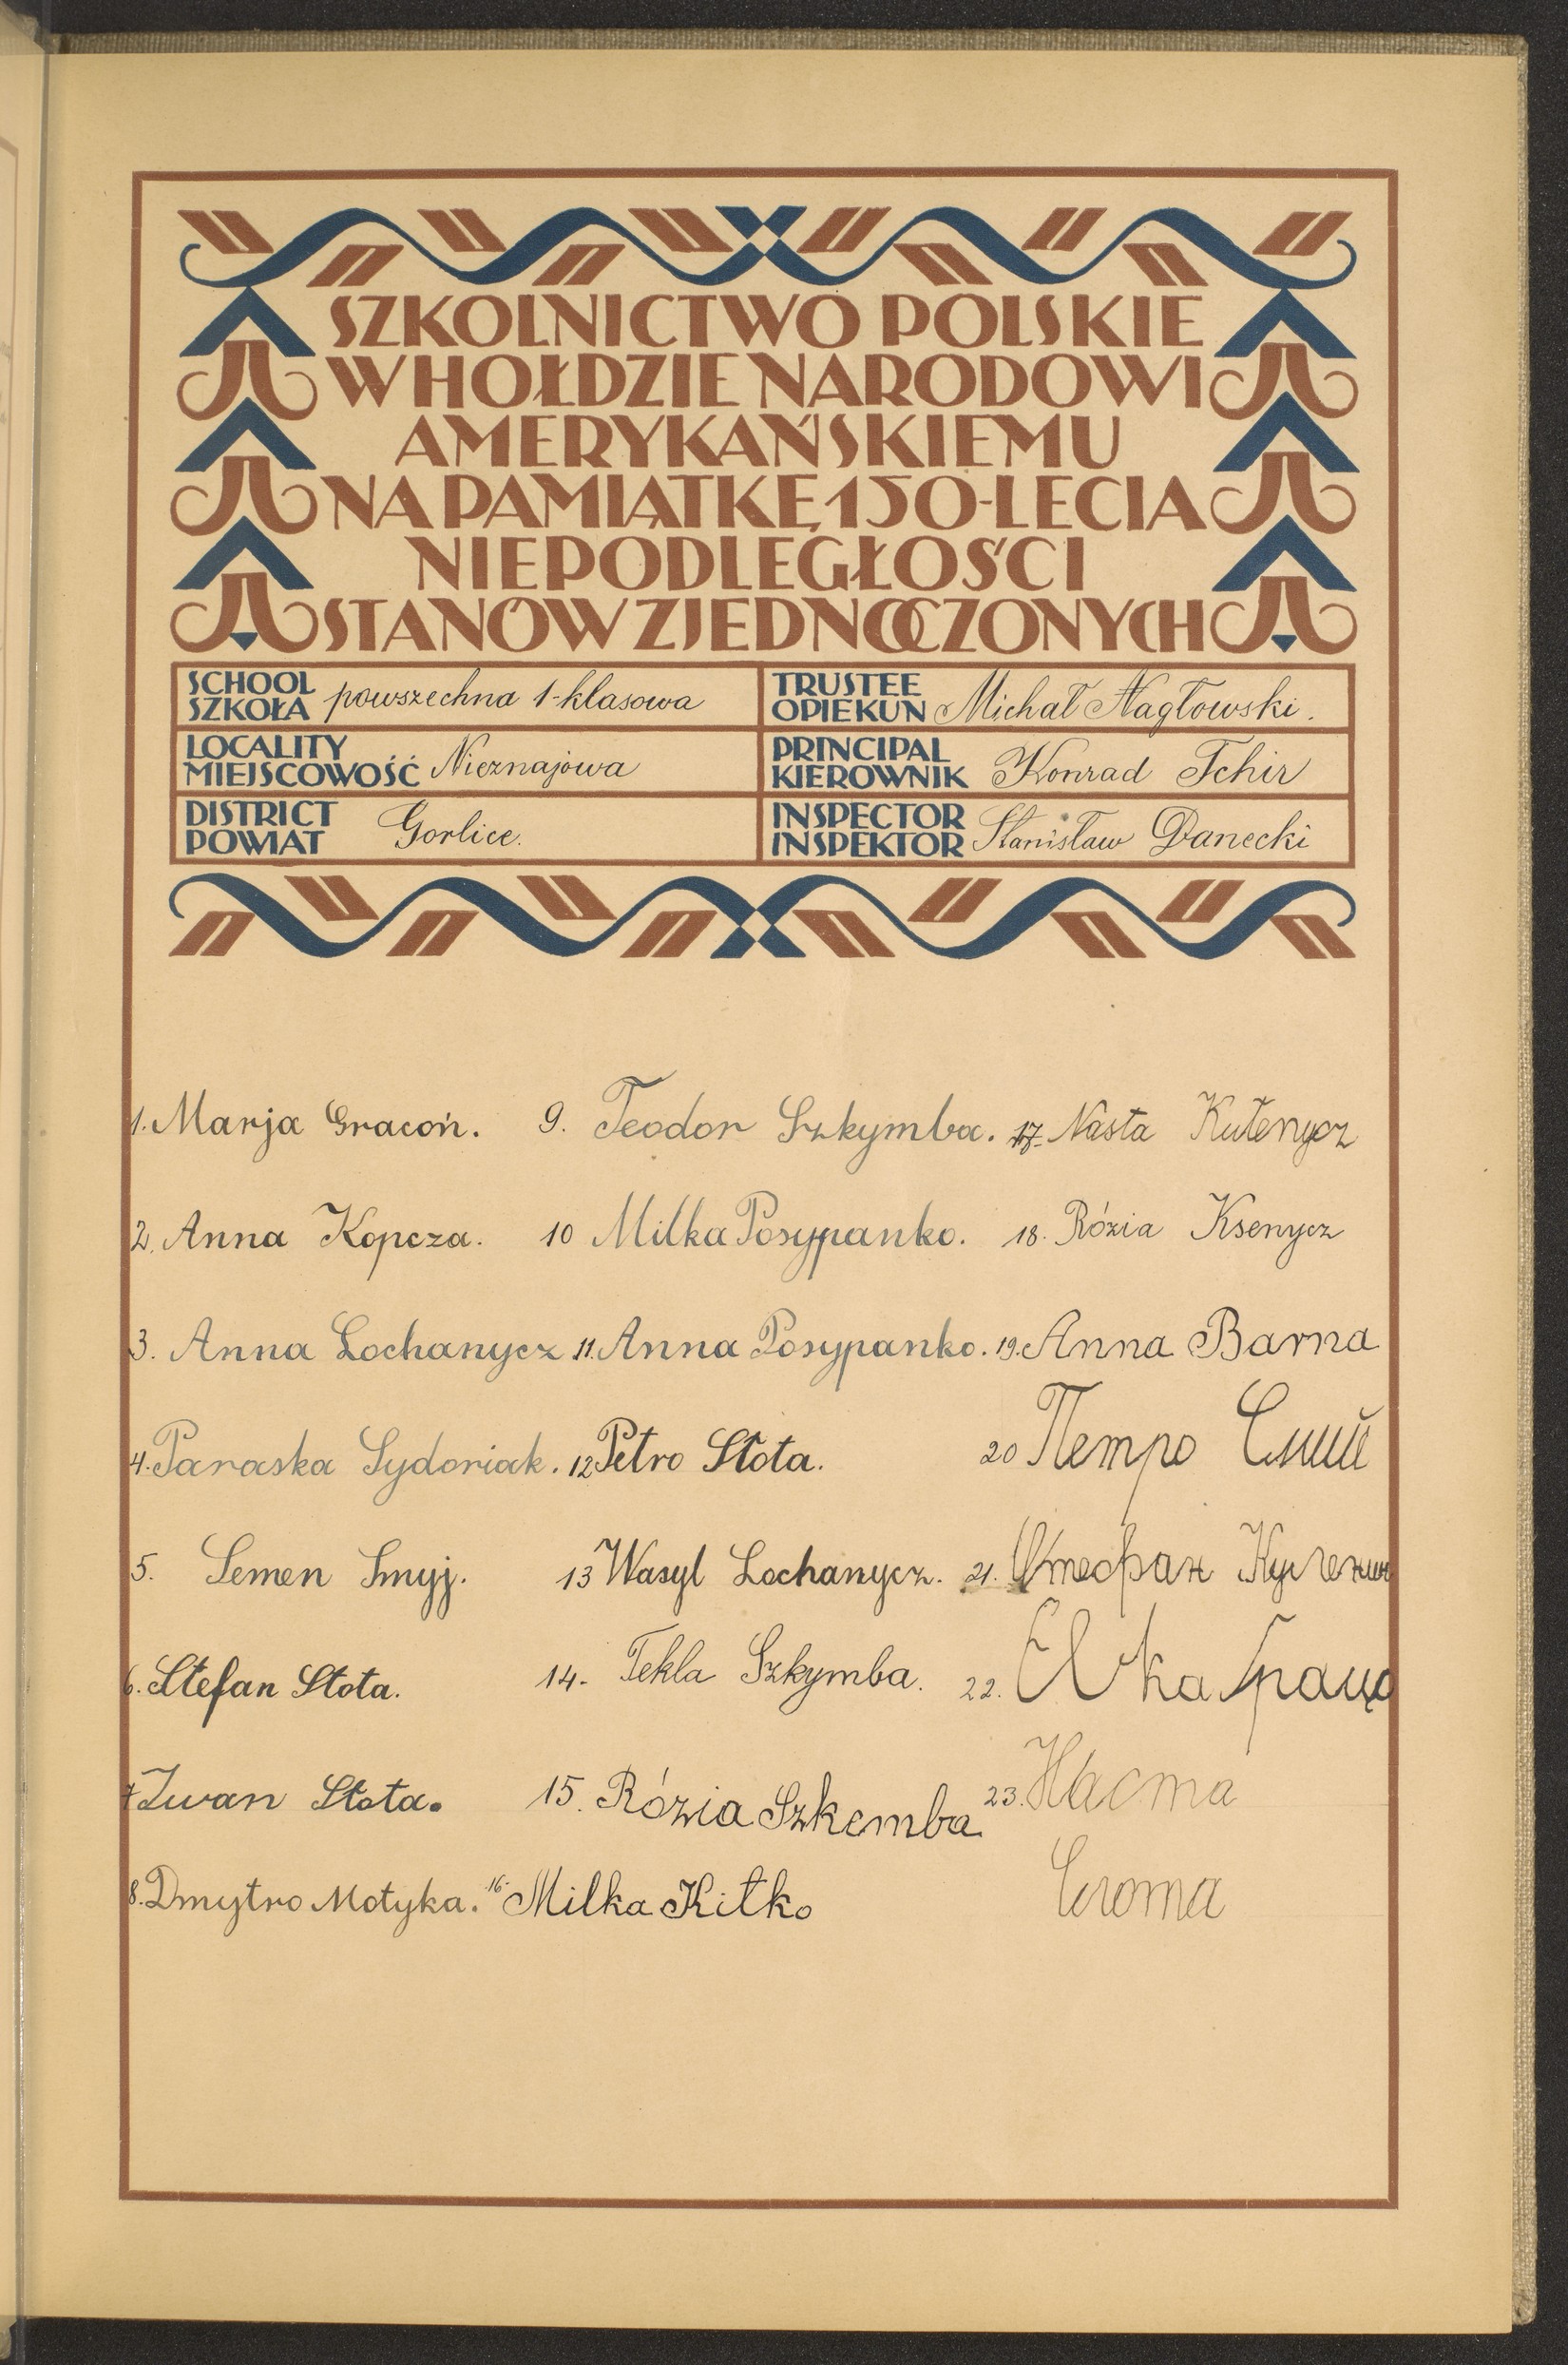 SZKOLNICTWO POLSKIE
W HOŁDZIE NARODOWI
AMERYKAŃSKIEMU
NA PAMIĄTKĘ 150-LECIA
NIEPODLEGŁOŚCI
STANÓW ZJEDNOCZONYCH
SCHOOL
SZKOŁA powszechna 1-klasowa
TRUSTEE
OPIEKUN Michał Nagłowski.
LOCALITY
MIEJSCOWOŚĆ Nieznajowa
PRINCIPAL
KIEROWNIK Konrad Tchir
DISTRICT
POWIAT Gorlice.
INSPECTOR
INSPEKTOR Stanisław Danecki
1. Marja Gracoń.
2. Anna Kopcza.
3. Anna Lochanycz
4. Paraska Sydoriak.
5. Semen Smyj.
6. Stefan Słota.
7 Iwan Słota.
8. Dmytro Motyka.
9. Teodor Szkymba.
10 Milka Posypanko.
11. Anna Posypanko.
12 Petro Słota.
13 Wasyl Lochanycz.
14. Tekla Szkymba.
15. Rózia Szkemba
16. Milka Kitko
17. Nasta Kułenycz
18. Rózia Ksenycz
19. Anna Barna
20 Петро Смий
21. Стефан
22.
23. Наста
Слота